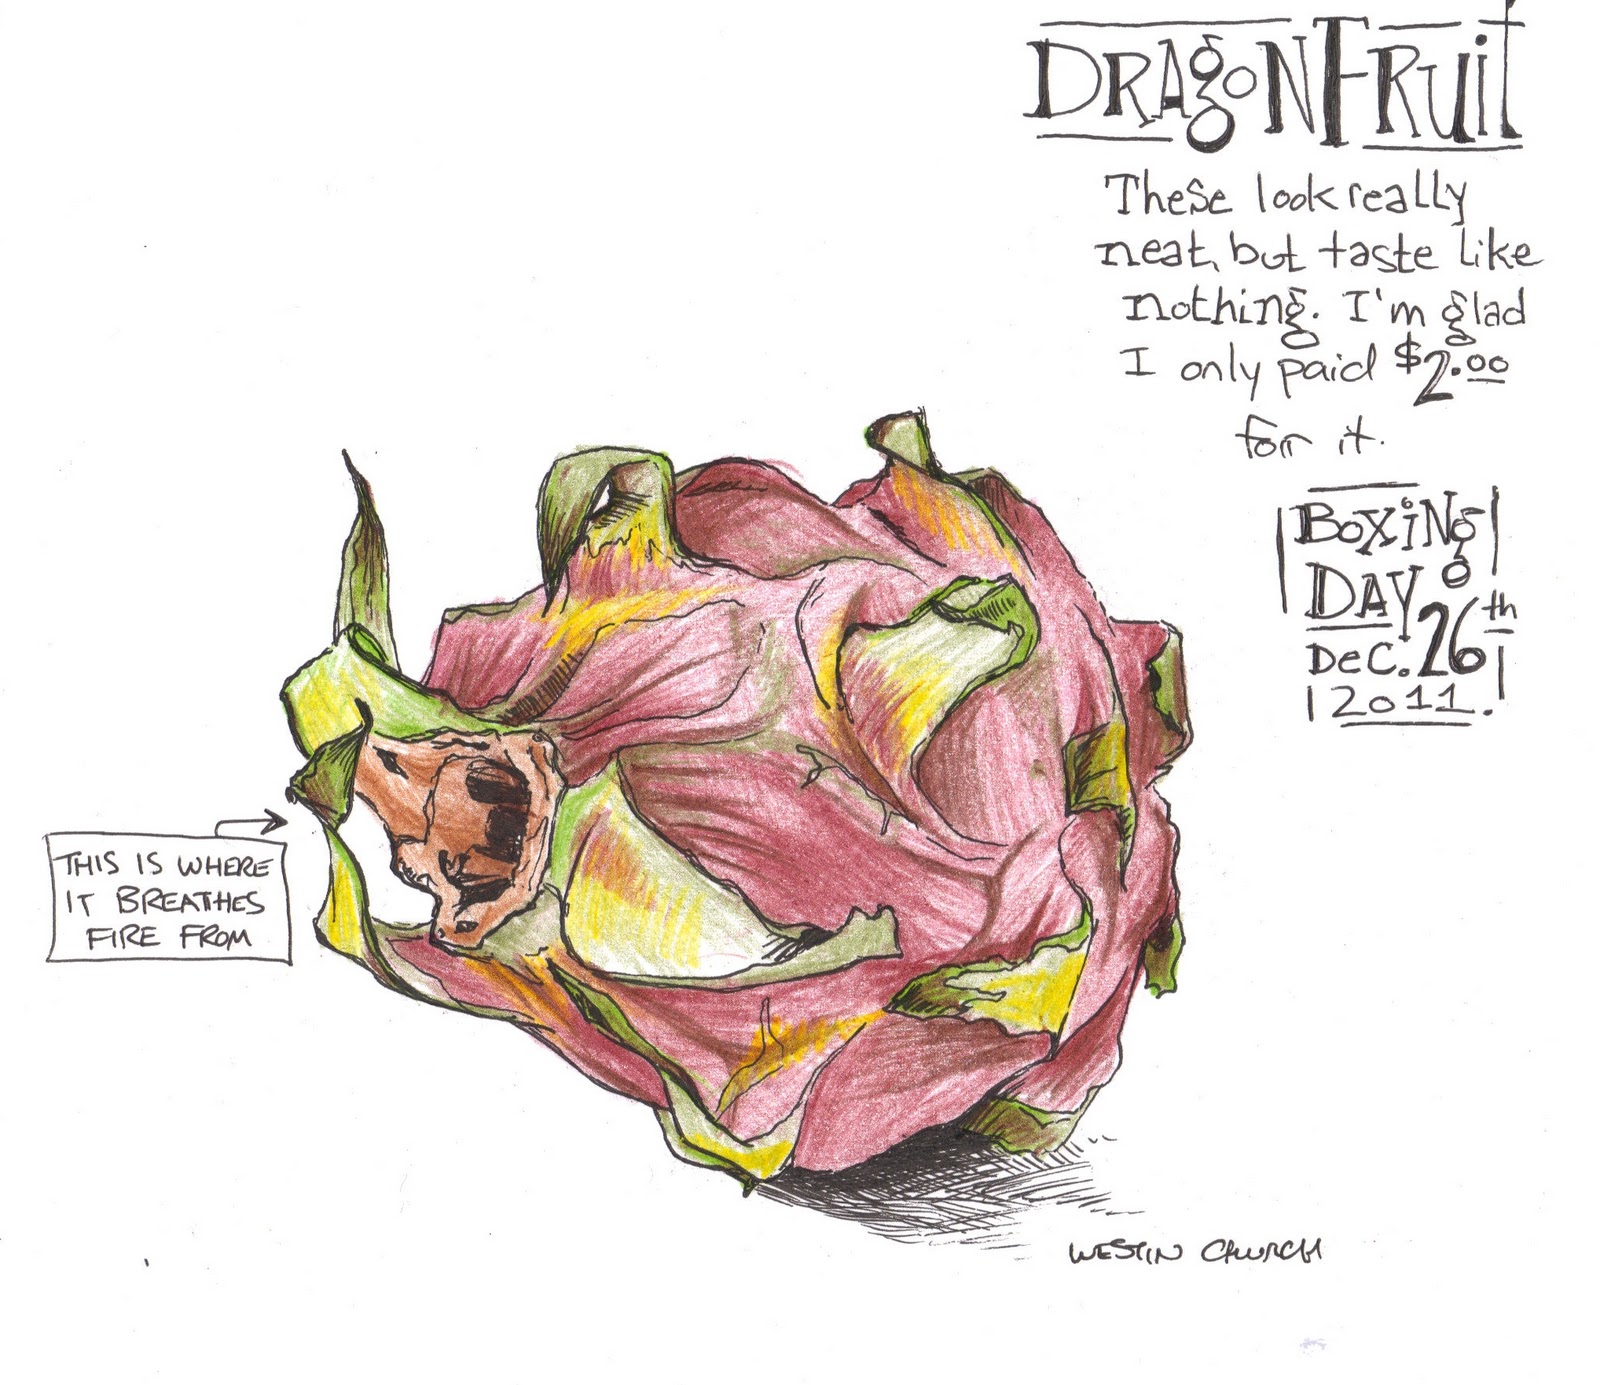 DRAgoNFRuit
These look really
neat, but taste like
nothing. I'm glad
I only paid $2.00
for it.
BOXiNg
DAY
DEC. 26th
2011.
THIS IS WHERE
IT BREATHES
FIRE FROM
WESTIN CHURCH